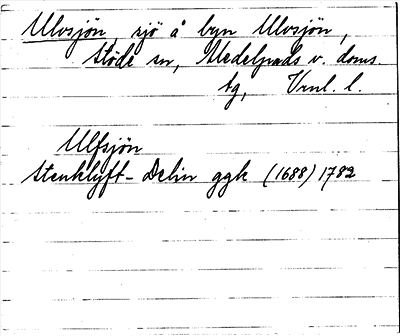 Ulvsjön, sjö å byn Ulvsjön,
Stöde sn, Medelpads v. doms.
tg, Vrnl. l.
Ulfsjön
Stenklyft-Delin ggk (1688) 1782